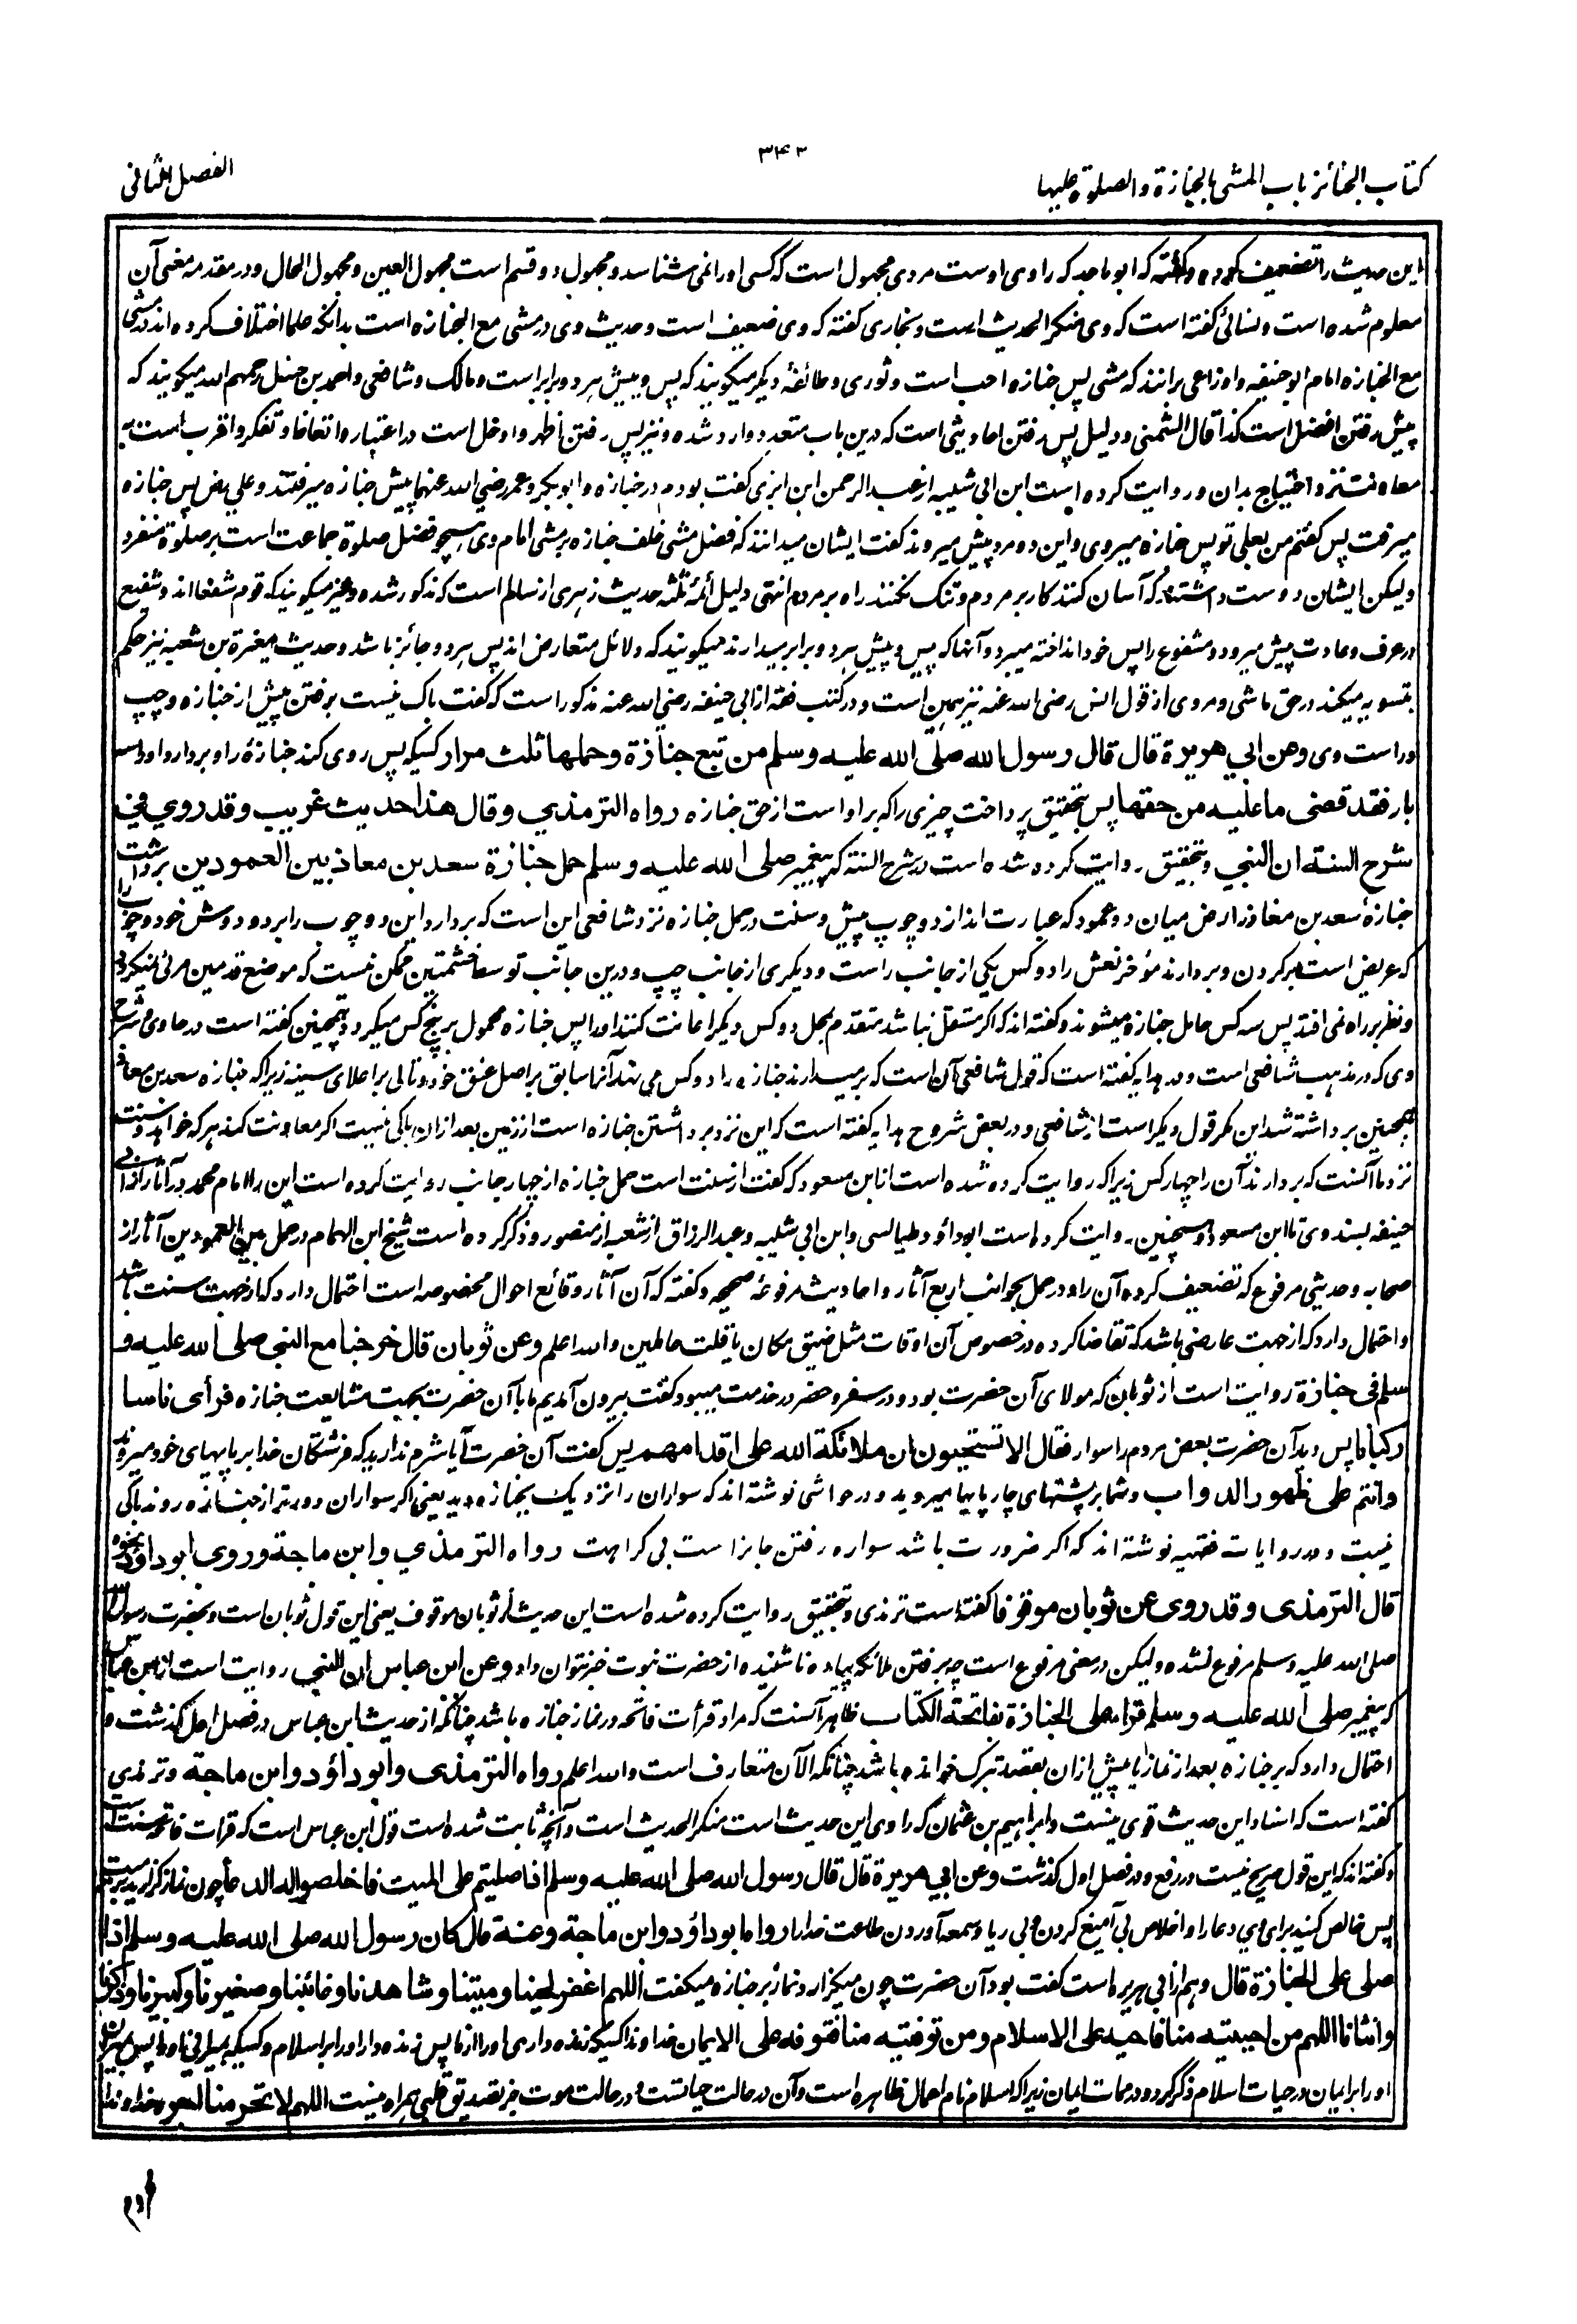 كتاب الجنائز باب المشی بالجنازة والصلوة علیها
۳۴۲
الفصل الثانی
این حدیث را تضعیف کرده و گفته که ابو ماجد که راوی اوست مردی مجهول است که کسی او را نمی شناسد و مجهول دو قسم است مجهول العین و مجهول الحال و در مقدمه معنی آن
معلوم شده است و نسائی گفته است که وی منکر الحدیث است و بخاری گفته که وی ضعیف است و حدیث وی در مشی مع الجنازه است بدانکه علما اختلاف کرده اند در مشی
مع الجنازه امام ابو حنیفه و اوزاعی برانند که مشی پس جنازه احب است و ثوری و طائفهٔ دیگر میگویند که پس و پیش هر دو برابر است و مالک و شافعی و احمد بن حنبل رحمهم الله میگویند که
پیش رفتن افضل است کذا قال الشمنی و دلیل پس رفتن احادیثی است که درین باب متعدد وارد شده و نیز پس رفتن اظهر و ادخل است در اعتبار و اتعاظ و تفکر و اقرب است به
معاونت نزد احتیاج بدان و روایت کرده است ابن ابی شیبه از عبد الرحمن ابن ابزی گفت بودم در جنازه و ابو بکر و عمر رضی الله عنهما پیش جنازه میرفتند و علی رض پس جنازه
میرفت پس گفتم من بعلی تو پس جنازه میروی و این دو مرد پیش میروند گفت ایشان میدانند که فضل مشی خلف جنازه بر مشی امام وی همچو فضل صلوة جماعت است بر صلوة منفرد
ولیکن ایشان دوست داشتند که آسان کنند کار بر مردم و تنگ نکنند راه بر مردم انتهی دلیل ائمه ثلثه حدیث زهری از سالم است که مذکور شده و نیز میگویند که قوم شفعا اند و شفیع
در عرف و عادت پیش میرود و مشفوع را پس خود انداخته میبرد و آنها که پس و پیش هر دو برابر میدارند میگویند که دلائل متعارض اند پس هر دو جائز باشد و حدیث مغیرة بن شعبه نیز حکم
بتسویه میکند در حق ماشی و مروی از قول انس رضی الله عنه نیز همین است و در کتب فقه از ابی حنیفه رضی الله عنه مذکور است که گفت باک نیست برفتن پیش از جنازه و چپ
و راست وی وعن ابي هريرة قال قال رسول الله صلى الله عليه وسلم من تبع جنازة وحملها ثلث مرار کسیکه پس روی کند جنازه را و بردارد او را سه
بار فقد قضى ما عليه من حقها پس بتحقیق پرداخت چیزی را که بر اوست از حق جنازه رواه الترمذي وقال هذا حديث غريب وقد روي في
شرح السنة ان النبي و بتحقیق روایت کرده شده است در شرح السنة که پیغمبر صلى الله عليه وسلم حمل جنازة سعد بن معاذ بين العمودين برداشت
جنازهٔ سعد بن معاذ را رض میان دو عمود که عبارت اند از دو چوب پیش و سنت در حمل جنازه نزد شافعی این است که بردارد این دو چوب را بر دو دوش خود و چوب را
که عریض است بر گردن و بردارند مؤخر نعش را دو کس یکی از جانب راست و دیگری از جانب چپ و درین جانب توسط خشبتین ممکن نیست که موضع قدمین مرئی نمیگردد
و نظر بر راه نمی افتد پس سه کس حامل جنازه میشوند و گفته اند که اگر مستقل نباشد متقدم بحمل دو کس دیگر اعانت کنند او را پس جنازه محمول بر پنج کس میگردد همچنین گفته است در حاوی و شرح
وی که در مذهب شافعی است و در هدایه گفته است که قول شافعی آن است که برمیدارند جنازه را دو کس می نهد آنرا سابق بر اصل عنق خود و تالی بر اعلای سینه زیرا که جنازه سعد بن معاذ
همچنین برداشته شد این مگر قول دیگر است از شافعی و در بعض شروح هدایه گفته است که این نزد برداشتن جنازه است از زمین بعد از ان باکی نیست اگر معاونت کند هر که خواهد و سنت
نزد ما آنست که بردارند آن را چهار کس زیرا که روایت کرده شده است از ابن مسعود که گفت از سنت است حمل جنازه از چهار جانب روایت کرده است این را امام محمد در آثار از ابی
حنیفه بسند وی تا ابن مسعود و همچنین روایت کرده است ابو داؤد طیالسی و ابن ابی شیبه و عبد الرزاق از شعبه از منصور و ذکر کرده است شیخ ابن الهمام در حمل بین العمودین آثار از
صحابه و حدیثی مرفوع که تضعیف کرده آن را و در حمل بجوانب اربع آثار و احادیث مرفوعهٔ صحیحه و گفته که آن آثار وقائع احوال مخصوصه است احتمال دارد که از جهت سنت باشد
و احتمال دارد که از جهت عارضی باشد که تقاضا کرده در خصوص آن اوقات مثل ضیق مکان یا قلت حاملین و الله اعلم وعن ثوبان قال خرجنا مع النبي صلى الله عليه و
سلم في جنازة روایت است از ثوبان که مولای آن حضرت بود و در سفر و حضر در خدمت میبود گفت بیرون آمدیم ما با آن حضرت بجهت مشایعت جنازه فرأى ناسا
ركبانا پس دید آن حضرت بعض مردم را سوار فقال الا تستحيون ان ملائكة الله على اقدامهم پس گفت آن حضرت آیا شرم ندارید که فرشتگان خدا بر پایهای خود میروند
وانتم على ظهور الدواب و شما بر پشتهای چارپایها میروید و در حواشی نوشته اند که سواران را نزدیک بجنازه دید یعنی اگر سواران دورتر از جنازه روند باکی
نیست و در روایات فقهیه نوشته اند که اگر ضرورت باشد سواره رفتن جایز است بی کراهت رواه الترمذي وابن ماجة وروى ابو داؤد نحوه
قال الترمذي وقد روى عن ثوبان موقوفا گفته است ترمذی و بتحقیق روایت کرده شده است این حدیث از ثوبان موقوف یعنی این قول ثوبان است و بحضرت رسول الله
صلی الله علیه وسلم مرفوع نشده ولیکن در معنی مرفوع است چه برفتن ملائکه پیاده ناشنیده از حضرت نبوت خبر نتوان داد وعن ابن عباس ان النبي روایت است از ابن عباس
که پیغمبر صلى الله عليه وسلم قرا على الجنازة بفاتحة الكتاب ظاهر آنست که مراد قرأت فاتحه در نماز جنازه باشد چنانکه از حدیث ابن عباس در فصل اول گذشت و
احتمال دارد که بر جنازه بعد از نماز یا پیش از ان بقصد تبرک خوانده باشد چنانکه الآن متعارف است والله اعلم رواه الترمذي وابو داؤد وابن ماجة و ترمذی
گفته است که اسناد این حدیث قوی نیست و ابراهیم بن عثمان که راوی این حدیث است منکر الحدیث است و آنچه ثابت شده است قول ابن عباس است که قرات فاتحه سنت است
و گفته اند که این قول صریح نیست در رفع و در فصل اول گذشت وعن ابي هريرة قال قال رسول الله صلى الله عليه وسلم اذا صليتم على الميت فاخلصوا له الدعاء چون نماز گزارید بر میت
پس خالص کنید برای وی دعا را و اخلاص بی آمیغ کردن و بی ریا و سمعه آوردن طاعت خدا را رواه ابو داؤد وابن ماجة وعنه قال كان رسول الله صلى الله عليه وسلم اذا
صلى على الجنازة قال و هم از ابی هریره است گفت بود آن حضرت چون میگزارد نماز بر جنازه میگفت اللهم اغفر لحينا وميتنا وشاهدنا وغائبنا وصغيرنا وكبيرنا وذكرنا
وانثانا اللهم من احييته منا فاحيه على الاسلام ومن توفيته منا فتوفه على الايمان خداوندا کسیکه زنده داری او را از ما پس زنده دار او را بر اسلام و کسیکه بمیرانی او را پس بمیران
او را بر ایمان در حیات اسلام ذکر کرد و در ممات ایمان زیرا که اسلام نام اعمال ظاهره است و آن در حالت حیات است و در حالت موت جز تصدیق قلبی همراه نیست اللهم لا تحرمنا اجره خداوندا